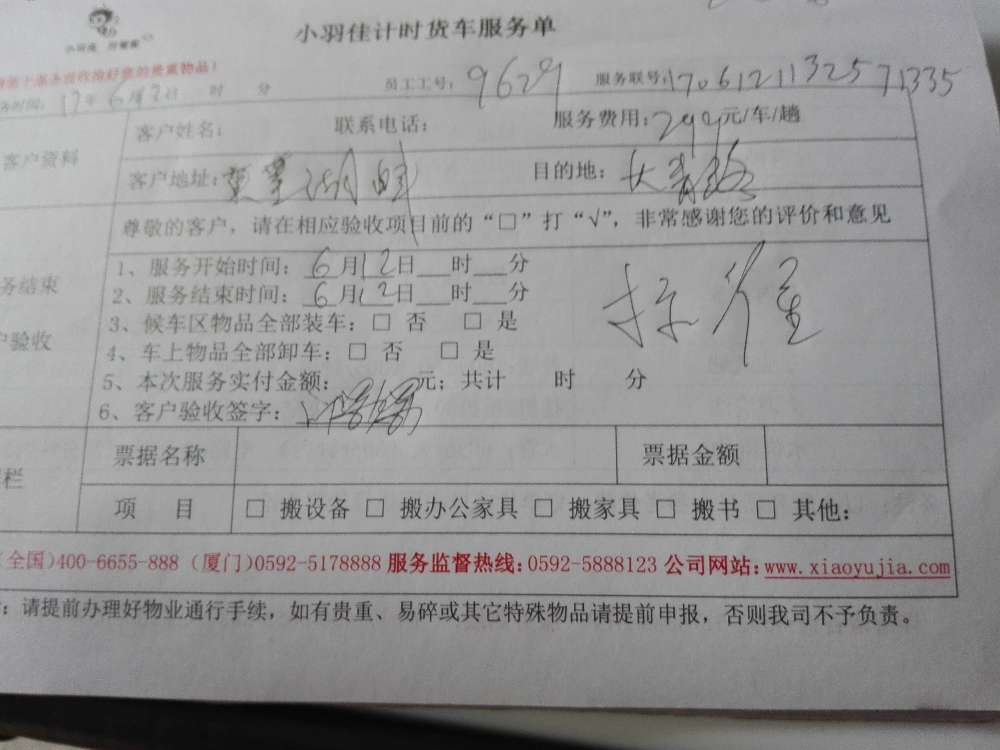 小羽佳计时货车服务单
员工工号: 9629 服务联号: 170612113257 1335
务时间: 17年6月12日 时 分
客户资料
客户姓名: 联系电话: 服务费用: 299元/车/趟
客户地址: 目的地: 大青路
尊敬的客户，请在相应验收项目前的“□”打“√”，非常感谢您的评价和意见
务结束
户验收
1、服务开始时间: 6月12日___时___分
2、服务结束时间: 6月12日___时___分
3、候车区物品全部装车: □ 否 □ 是
4、车上物品全部卸车: □ 否 □ 是
5、本次服务实付金额: 元; 共计 时 分
6、客户验收签字:
栏
票据名称 票据金额
项 目 □ 搬设备 □ 搬办公家具 □ 搬家具 □ 搬书 □ 其他:
(全国)400-6655-888 (厦门)0592-5178888 服务监督热线:0592-5888123 公司网站:www.xiaoyujia.com
: 请提前办理好物业通行手续，如有贵重、易碎或其它特殊物品请提前申报，否则我司不予负责。